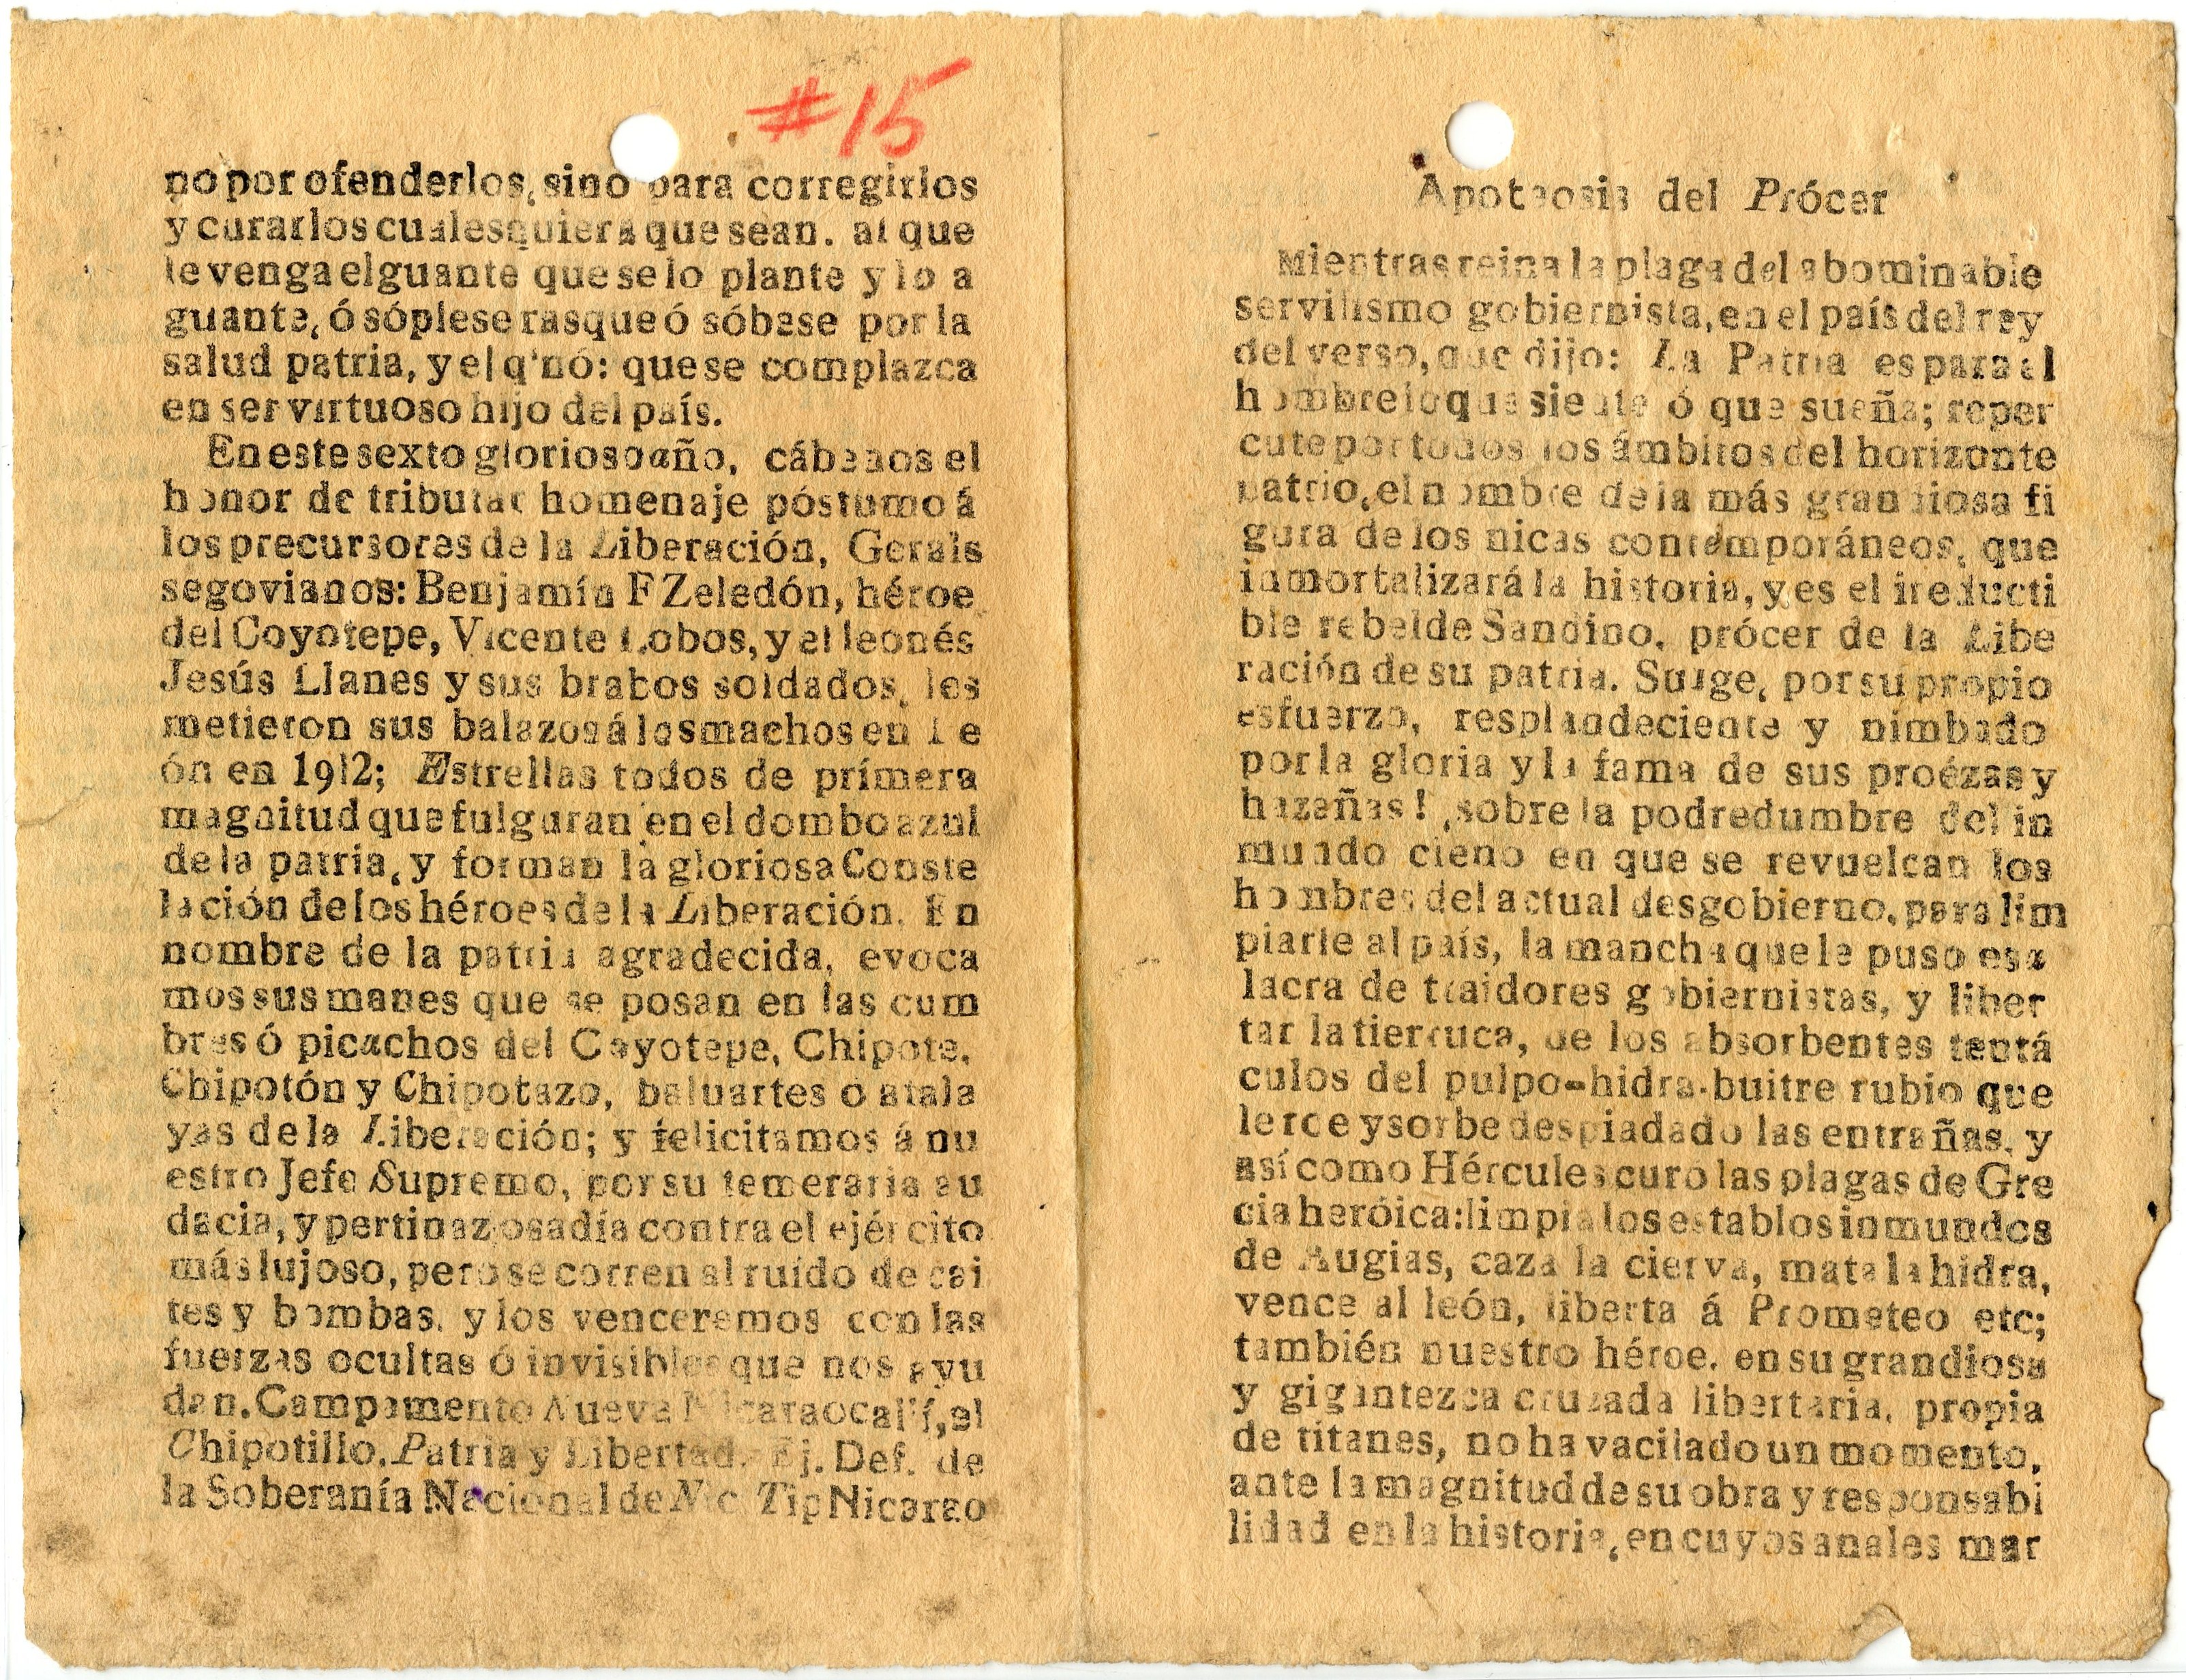 #15
no por ofenderlos, sino para corregirlos
y curarlos cualesquiera que sean. al que
le venga el guante que se lo plante y lo a
guante, ó sóplese rasque ó sóbese por la
salud patria, y el q'nó: que se complazca
en ser virtuoso hijo del país.
En este sexto glorioso año, cábenos el
honor de tributar homenaje póstumo á
los precursores de la Liberación, Gerals
segovianos: Benjamín F Zeledón, héroe
del Coyotepe, Vicente Lobos, y el leonés
Jesús Llanes y sus brabos soldados, les
metieron sus balazos á los machos en Le
ón en 1912; Estrellas todos de prímera
magnitud que fulguran en el dombo azul
de la patria, y forman la gloriosa Conste
lación de los héroes de la Liberación. En
nombre de la patria agradecida, evoca
mos sus manes que se posan en las cum
bres ó picachos del Coyotepe, Chipote,
Chipotón y Chipotazo, baluartes o atala
yas de la Liberación; y felicitamos á nu
estro Jefe Supremo, por su temeraria au
dacia, y pertinaz osadía contra el ejército
más lujoso, pero se corren al ruído de cai
tes y bombas, y los venceremos con las
fuerzas ocultas ó invisibles que nos ayu
dan. Campamento Nueva Nicaraocallí, el
Chipotillo. Patria y Libertad. Ej. Def. de
la Soberanía Nacional de Nic. Tip Nicarao
Apoteosis del Prócer
Mientras reina la plaga del abominable
servilismo gobiernista, en el país del rey
del verso, que dijo: La Patria es para el
hombre lo que siente ó que sueña; reper
cute por todos los ámbitos del horizonte
patrio, el nombre de la más grandiosa fi
gura de los nicas contemporáneos, que
inmortalizará la historia, y es el ireducti
ble rebelde Sandino, prócer de la Libe
ración de su patria. Surge, por su propio
esfuerzo, resplandeciente y nimbado
por la gloria y la fama de sus proézas y
hazañas! ,sobre la podredumbre del in
mundo cieno en que se revuelcan los
hombres del actual desgobierno, para lim
piarle al país, la mancha que le puso esa
lacra de traidores gobiernistas, y liber
tar la tierruca, de los absorbentes tentá
culos del pulpo-hidra-buitre rubio que
le roe y sorbe despiadado las entrañas, y
así como Hércules curó las plagas de Gre
cia heróica: limpia los establos inmundos
de Augias, caza la cierva, mata la hidra,
vence al león, liberta á Prometeo etc;
también nuestro héroe. en su grandiosa
y gigantezca cruzada libertaria, propia
de titanes, no ha vacilado un momento,
ante la magnitud de su obra y responsabi
lidad en la historia, en cuyos anales mar